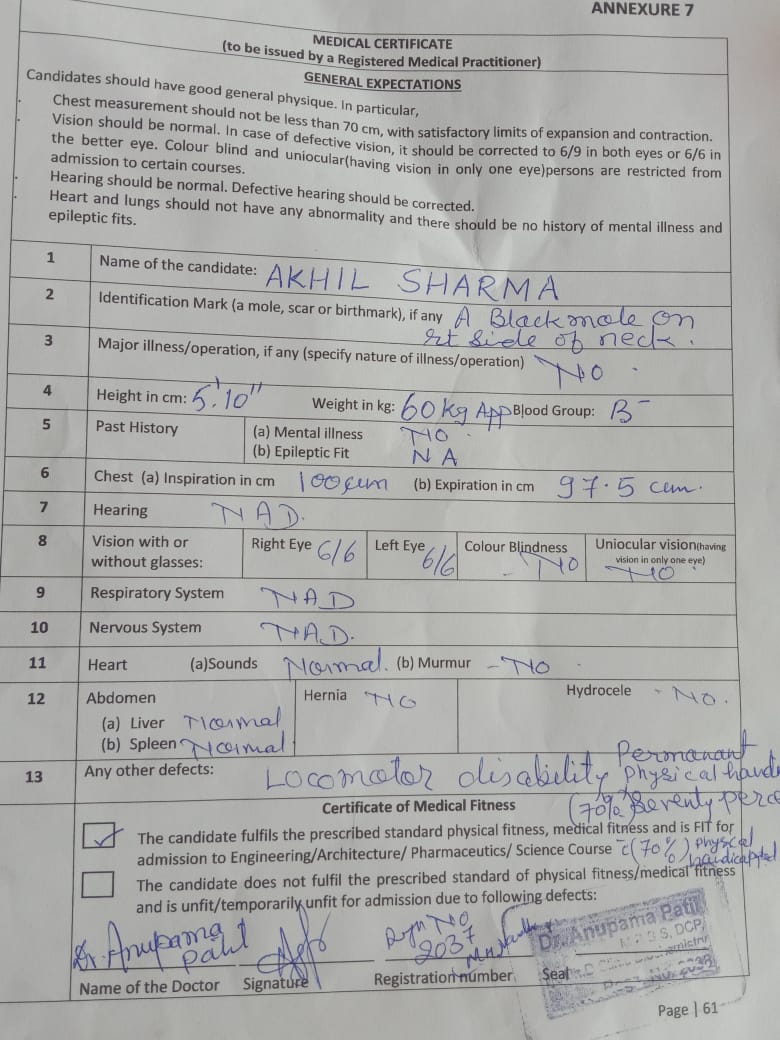 ANNEXURE 7
MEDICAL CERTIFICATE
(to be issued by a Registered Medical Practitioner)
GENERAL EXPECTATIONS
Candidates should have good general physique. In particular,
Chest measurement should not be less than 70 cm, with satisfactory limits of expansion and contraction.
Vision should be normal. In case of defective vision, it should be corrected to 6/9 in both eyes or 6/6 in
the better eye. Colour blind and uniocular(having vision in only one eye)persons are restricted from
admission to certain courses.
Hearing should be normal. Defective hearing should be corrected.
Heart and lungs should not have any abnormality and there should be no history of mental illness and
epileptic fits.
1 Name of the candidate: AKHIL SHARMA
2 Identification Mark (a mole, scar or birthmark), if any A Black mole on
rt side of neck.
3 Major illness/operation, if any (specify nature of illness/operation) NO
4 Height in cm: 5'.10" Weight in kg: 60 kg App Blood Group: B-
5 Past History (a) Mental illness NO
(b) Epileptic Fit NA
6 Chest (a) Inspiration in cm 100 cm (b) Expiration in cm 97.5 cm.
7 Hearing NAD.
8 Vision with or without glasses: Right Eye 6/6 Left Eye 6/6 Colour Blindness - NO Uniocular vision(having vision in only one eye) NO
9 Respiratory System NAD
10 Nervous System NAD.
11 Heart (a)Sounds Normal. (b) Murmur - NO
12 Abdomen Hernia NO Hydrocele - NO.
(a) Liver Normal
(b) Spleen Normal
13 Any other defects: Locomotor disability Permanant
physical
(70% Seventy
Certificate of Medical Fitness
The candidate fulfils the prescribed standard physical fitness, medical fitness and is FIT for
admission to Engineering/Architecture/ Pharmaceutics/ Science Course c̄ (70%) physcal
The candidate does not fulfil the prescribed standard of physical fitness/medical fitness
and is unfit/temporarily unfit for admission due to following defects:
Dr. Anupama Patil
NO
2037
Dr. Anupama Patil
M B B S, DCP
Name of the Doctor Signature Registration number Seal
Page | 61